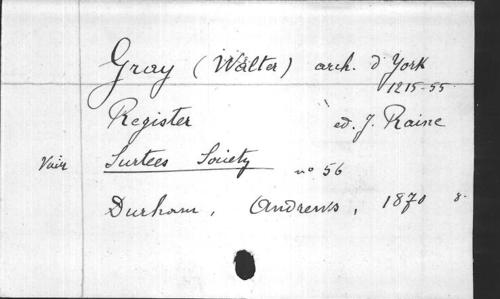 Gray (Walter) arch. d'York
1215-55
Register ed. J. Raine
Voir Surtees Society nº 56
Durham, Andrews, 1870 8·